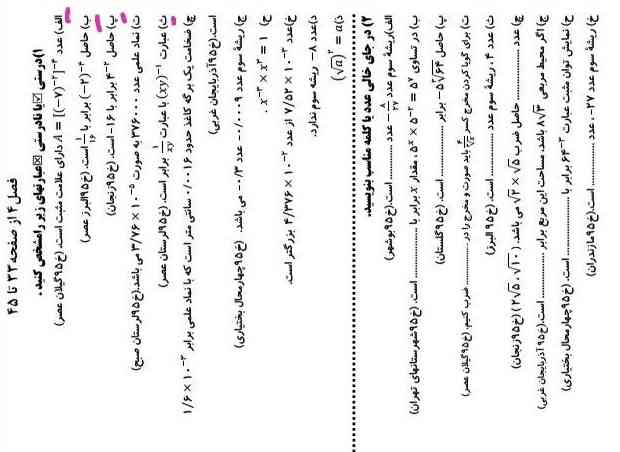 فصل ۴ از صفحه ۳۳ تا ۴۵
۱) درستی ☑ یا نادرستی ☒ عبارتهای زیر را مشخص کنید.
الف) عدد A = [(−۷)^−۲]^−۳ دارای علامت مثبت است. (خ۹۵گیلان عصر)
ب) حاصل (−۲)^−۴ برابر با ۱/۱۶ است. (خ۹۵البرز عصر)
پ) حاصل ۴^−۲ برابر با ۱۶− است. (خ۹۵زنجان)
ت) نماد علمی عدد ۳۷۶۰۰۰ به صورت ۳/۷۶ × ۱۰^−۵ می باشد. (خ۹۵لرستان صبح)
ث) عبارت (xy)^−۲ با عبارت ۱/xy برابر است. (خ۹۵لرستان عصر)
ج) ضخامت یک برگه کاغذ حدود ۰/۰۰۱۶ سانتی متر است که با نماد علمی برابر ۱/۶ × ۱۰^−۳
است. (خ۹۵آذربایجان غربی)
چ) ریشه سوم عدد ۰/۰۰۰۹− عدد ۰/۳− می باشد. (خ۹۵چهارمحال بختیاری)
ح) x^−۲ × x^۲ = ۱ .
خ) عدد ۷/۵۲ × ۱۰^−۳ از عدد ۴/۳۷۶ × ۱۰^−۲ بزرگتر است.
د) عدد ۸− ریشه سوم ندارد.
ذ) (√a)^۲ = a
۲) در جای خالی عدد یا کلمه مناسب بنویسید.
الف) ریشه سوم عدد −۸/۲۷ عدد ............ است. (خ۹۵بوشهر)
ب) در تساوی ۵^x × ۵^−۲ = ۵^۷ ، مقدار x برابر با ............ است. (خ۹۵شهرستانهای تهران)
پ) حاصل −۵∛۶۴ برابر ............ است. (خ۹۵گلستان)
ت) برای گویا کردن مخرج کسر باید صورت و مخرج را در ............ ضرب کنیم. (خ۹۵گیلان عصر)
ث) عدد ۴ ، ریشه سوم عدد ............ است. (خ۹۵البرز)
ج) عدد ............ حاصل ضرب √۲ × √۵ می باشد. (√۱۰ ، ۲√۵) (خ۹۵زنجان)
چ) اگر محیط مربعی ۸√۳ باشد، مساحت این مربع برابر ............ است. (خ۹۵آذربایجان غربی)
ح) نمایش توان مثبت عبارت ۶۴^−۳ برابر با ............ است. (خ۹۵چهارمحال بختیاری)
خ) ریشه سوم عدد ۲۷− ، عدد ............ است. (خ۹۵مازندران)